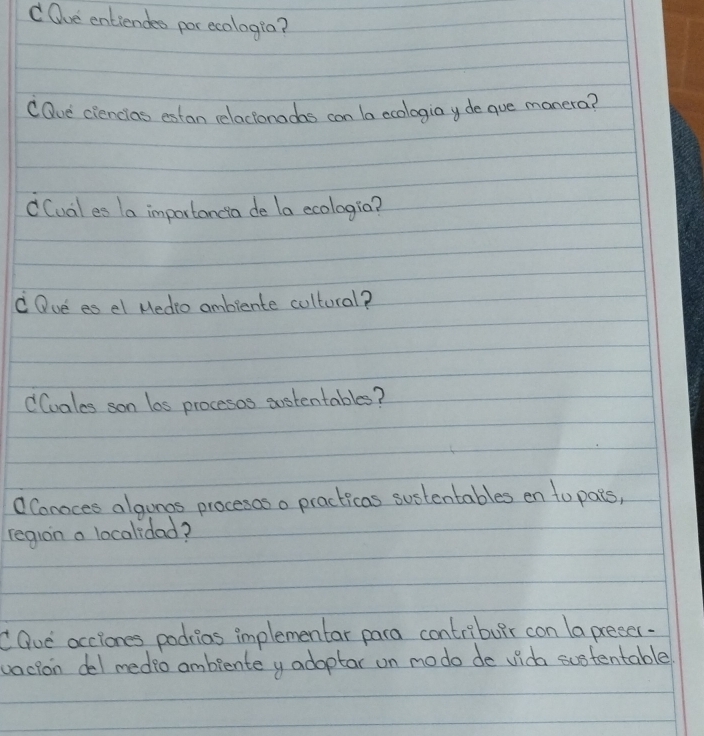 ¿Qué entiendes por ecologia?
¿Qué ciencias estan relacionadas con la ecologia y de que manera?
¿Cuál es la importancia de la ecologia?
¿Qué es el Medio ambiente cultural?
¿Cuales son los procesos sustentables?
¿Conoces algunos procesos o practicas sustentables en tu pais,
región o localidad?
¿Qué acciones podrias implementar para contribuir con la preser-
vación del medio ambiente y adoptar un modo de vida sustentable.